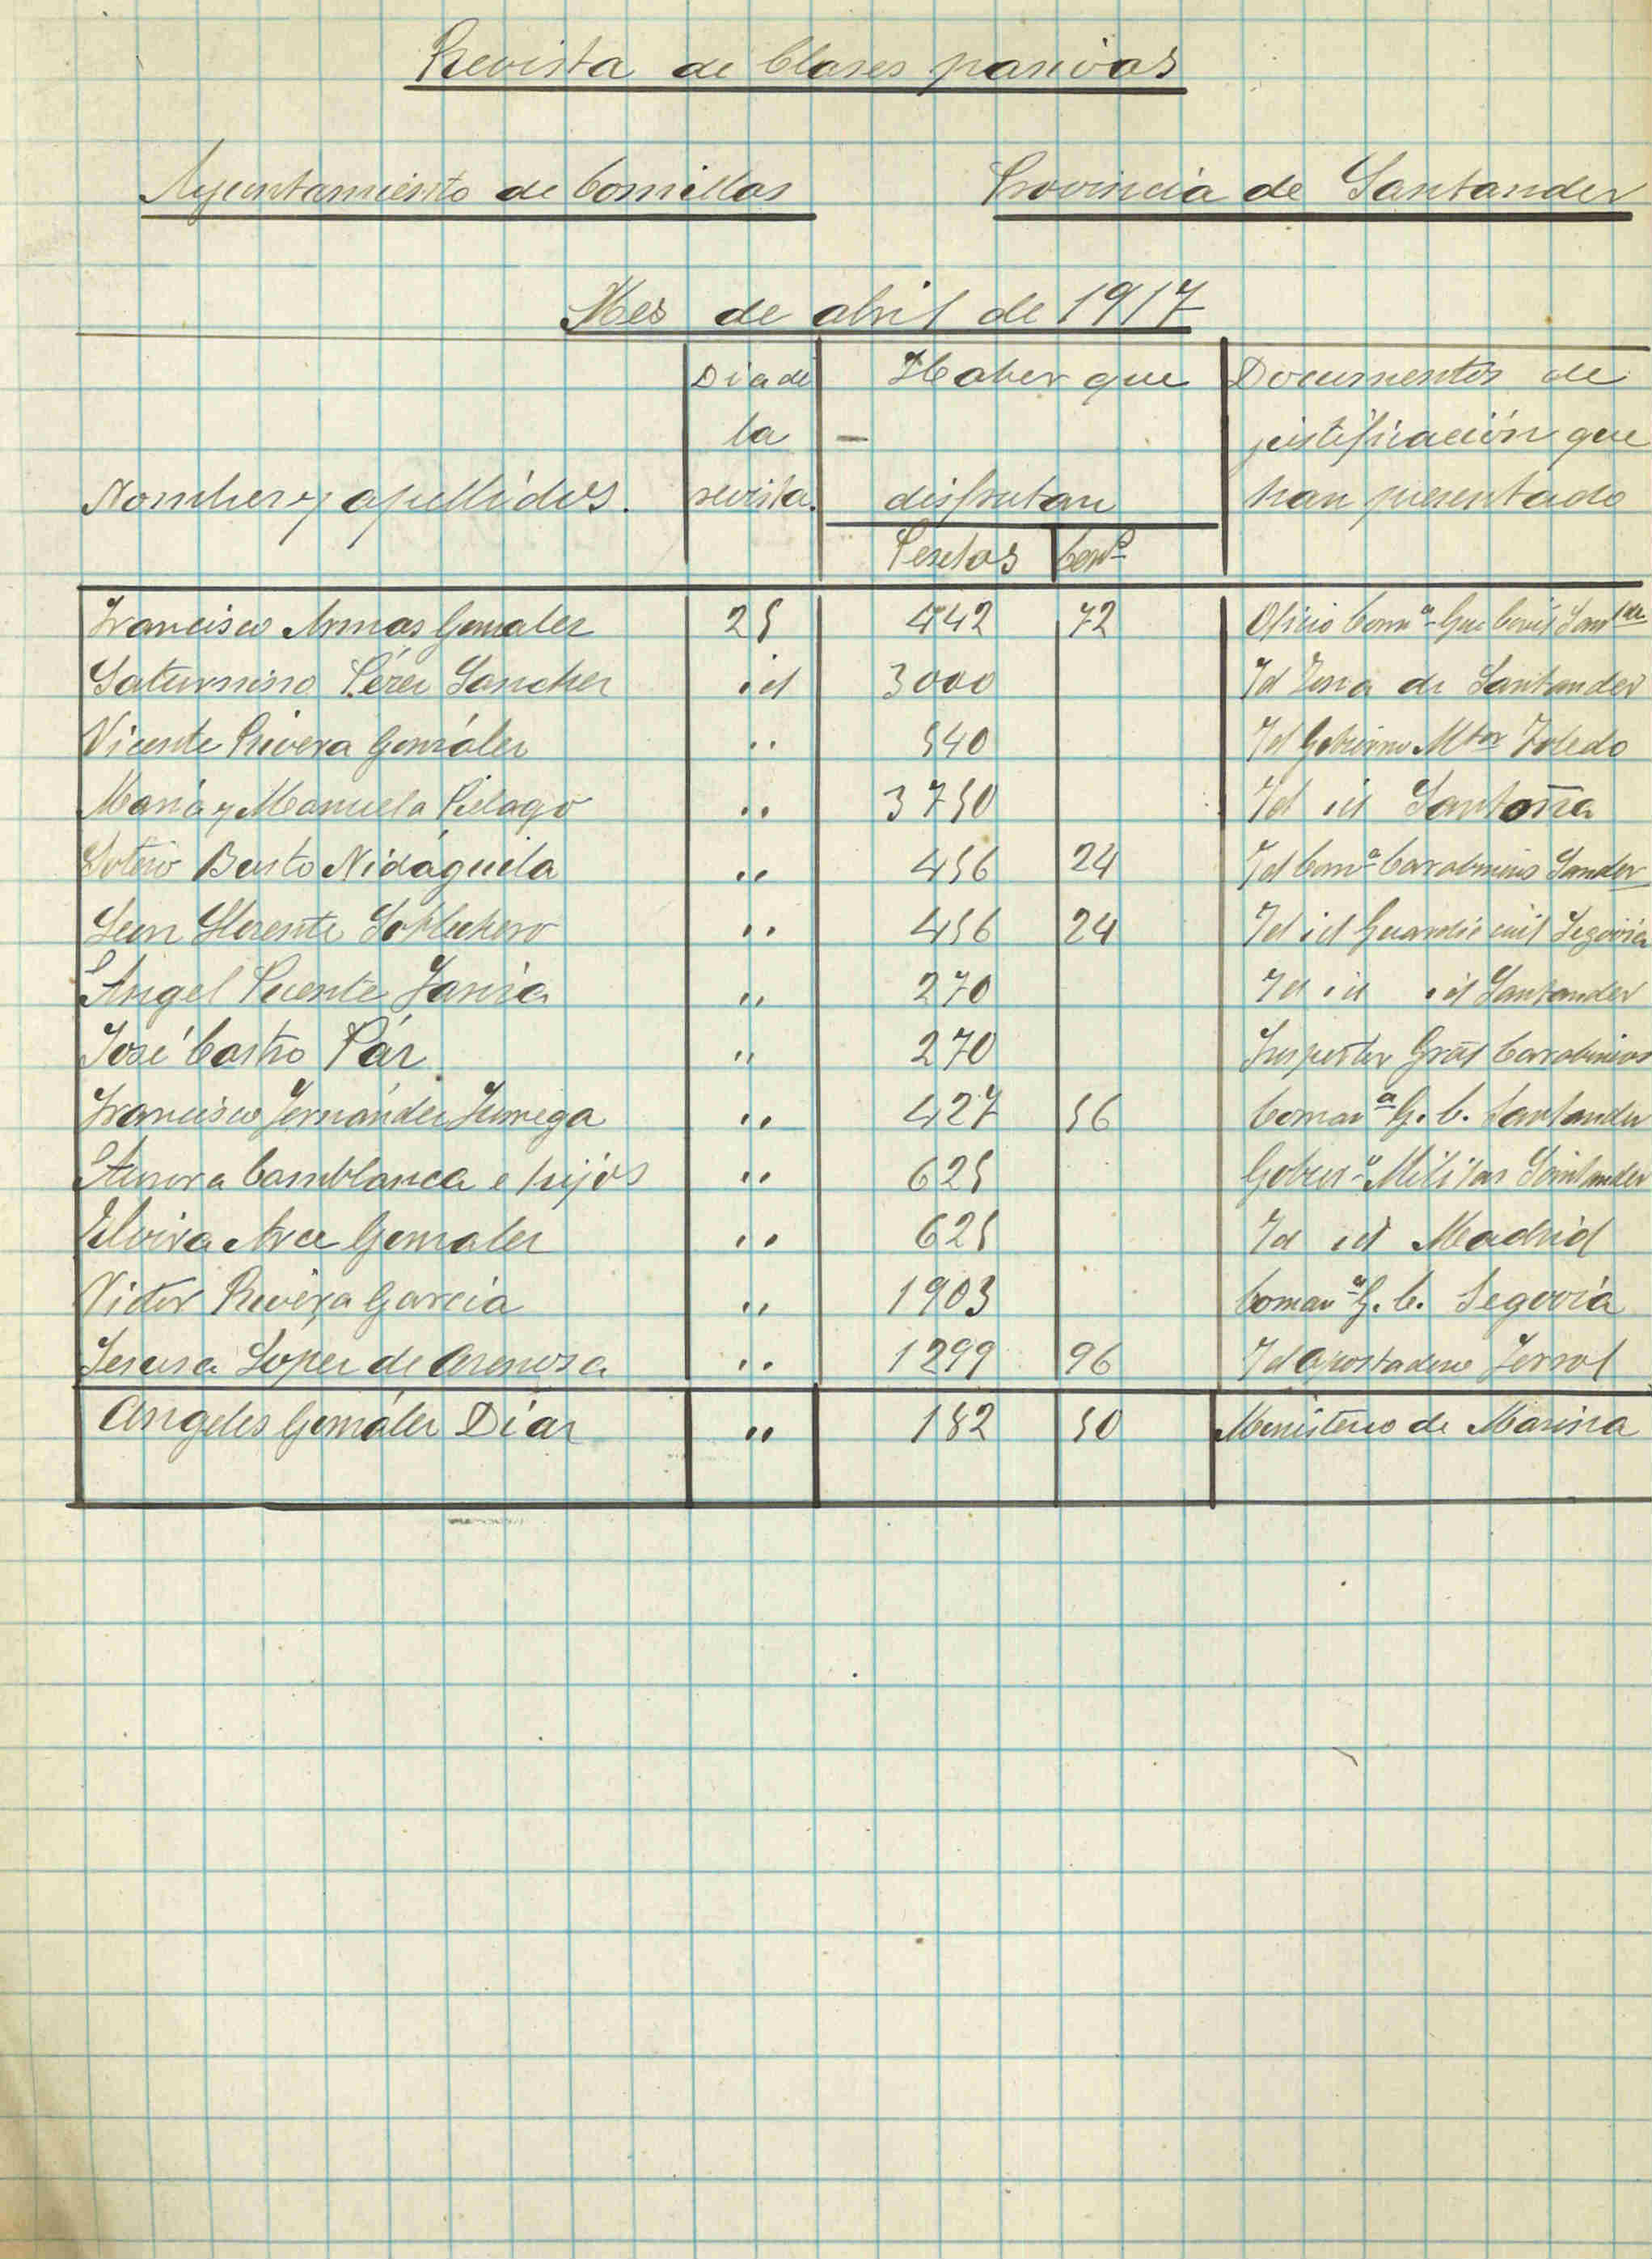 Revista de Clases pasivas
Ayuntamiento de Comillas Provincia de Santander
Mes de abril de 1917
Nombres y apellidos. Dia de la revista. Haber que disfrutan Documentos de justificación que han presentado
Pesetas Cents
Francisco Armas Gonzalez 25 442 72 Oficio Comª Gua Civil Santder
Saturnino Pérez Sanchez id 3000 Id Zona de Santander
Vicente Rivera González " 540 Id Gobierno Mtar Toledo
Maria y Manuela Piélago " 3750 Id id Santoña
Sotero Busto Nidáguila " 456 24 Id Comª Carabineros Sander
Leon Llorente 456 24 Id id Guardia civil Segovia
Angel Puente " 270 Id id id Santander
José Castro Páz " 270 Inspector Gral Carabineros
Francisco Fernández " 427 56 Comanª G. C. Santander
Aurora Camblanca e hijos " 625 Gobierº Militar Santander
Elvira Arce Gonzalez " 625 Id id Madrid
Victor Rivera García " 1903 Comanª G. C. Segovia
Teresa Lopez de Arenosa " 1299 96 Id Apostadero Ferrol
Angeles González Díaz " 182 50 Ministerio de Marina